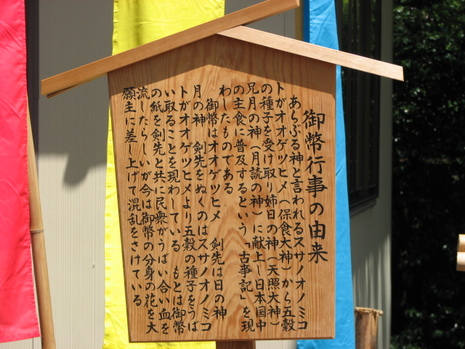 御幣行事の由来
あらぶる神と言われるスサノオノミコ
トがオオゲツヒメ(保食大神)から五穀
の種子を受け取り姉日の神(天照大神)
兄月の神(月読の神)に献上し日本国中
の主食に普及するという「古事記」を現
わしたものである
御幣はオオゲツヒメ 剣先は日の神
月の神 剣先をぬくのはスサノオノミコ
トがオオゲツヒメより五穀の種子をうば
い取ることを現わしている もとは御幣
の紙を剣先と共に民衆がうばい合い血を
流したらしいが今は御幣の分身の花を大
願主に差し上げて混乱をさけている